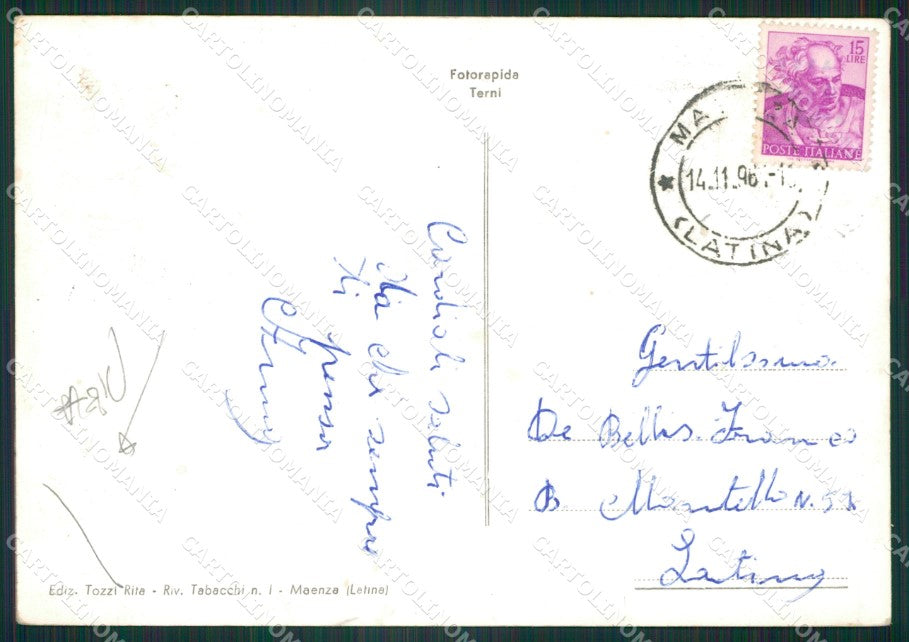 Fotorapida
Terni
15
LIRE
POSTE ITALIANE
MA
14.11.96
(LATINA)
Cordiali saluti
da chi sempre
ti pensa
Gentilssima
De Bellis Franco
B. Montello N. 
Latina
Ediz. Tozzi Rita - Riv. Tabacchi n. 1 - Maenza (Latina)
CARTOLINOMANIA